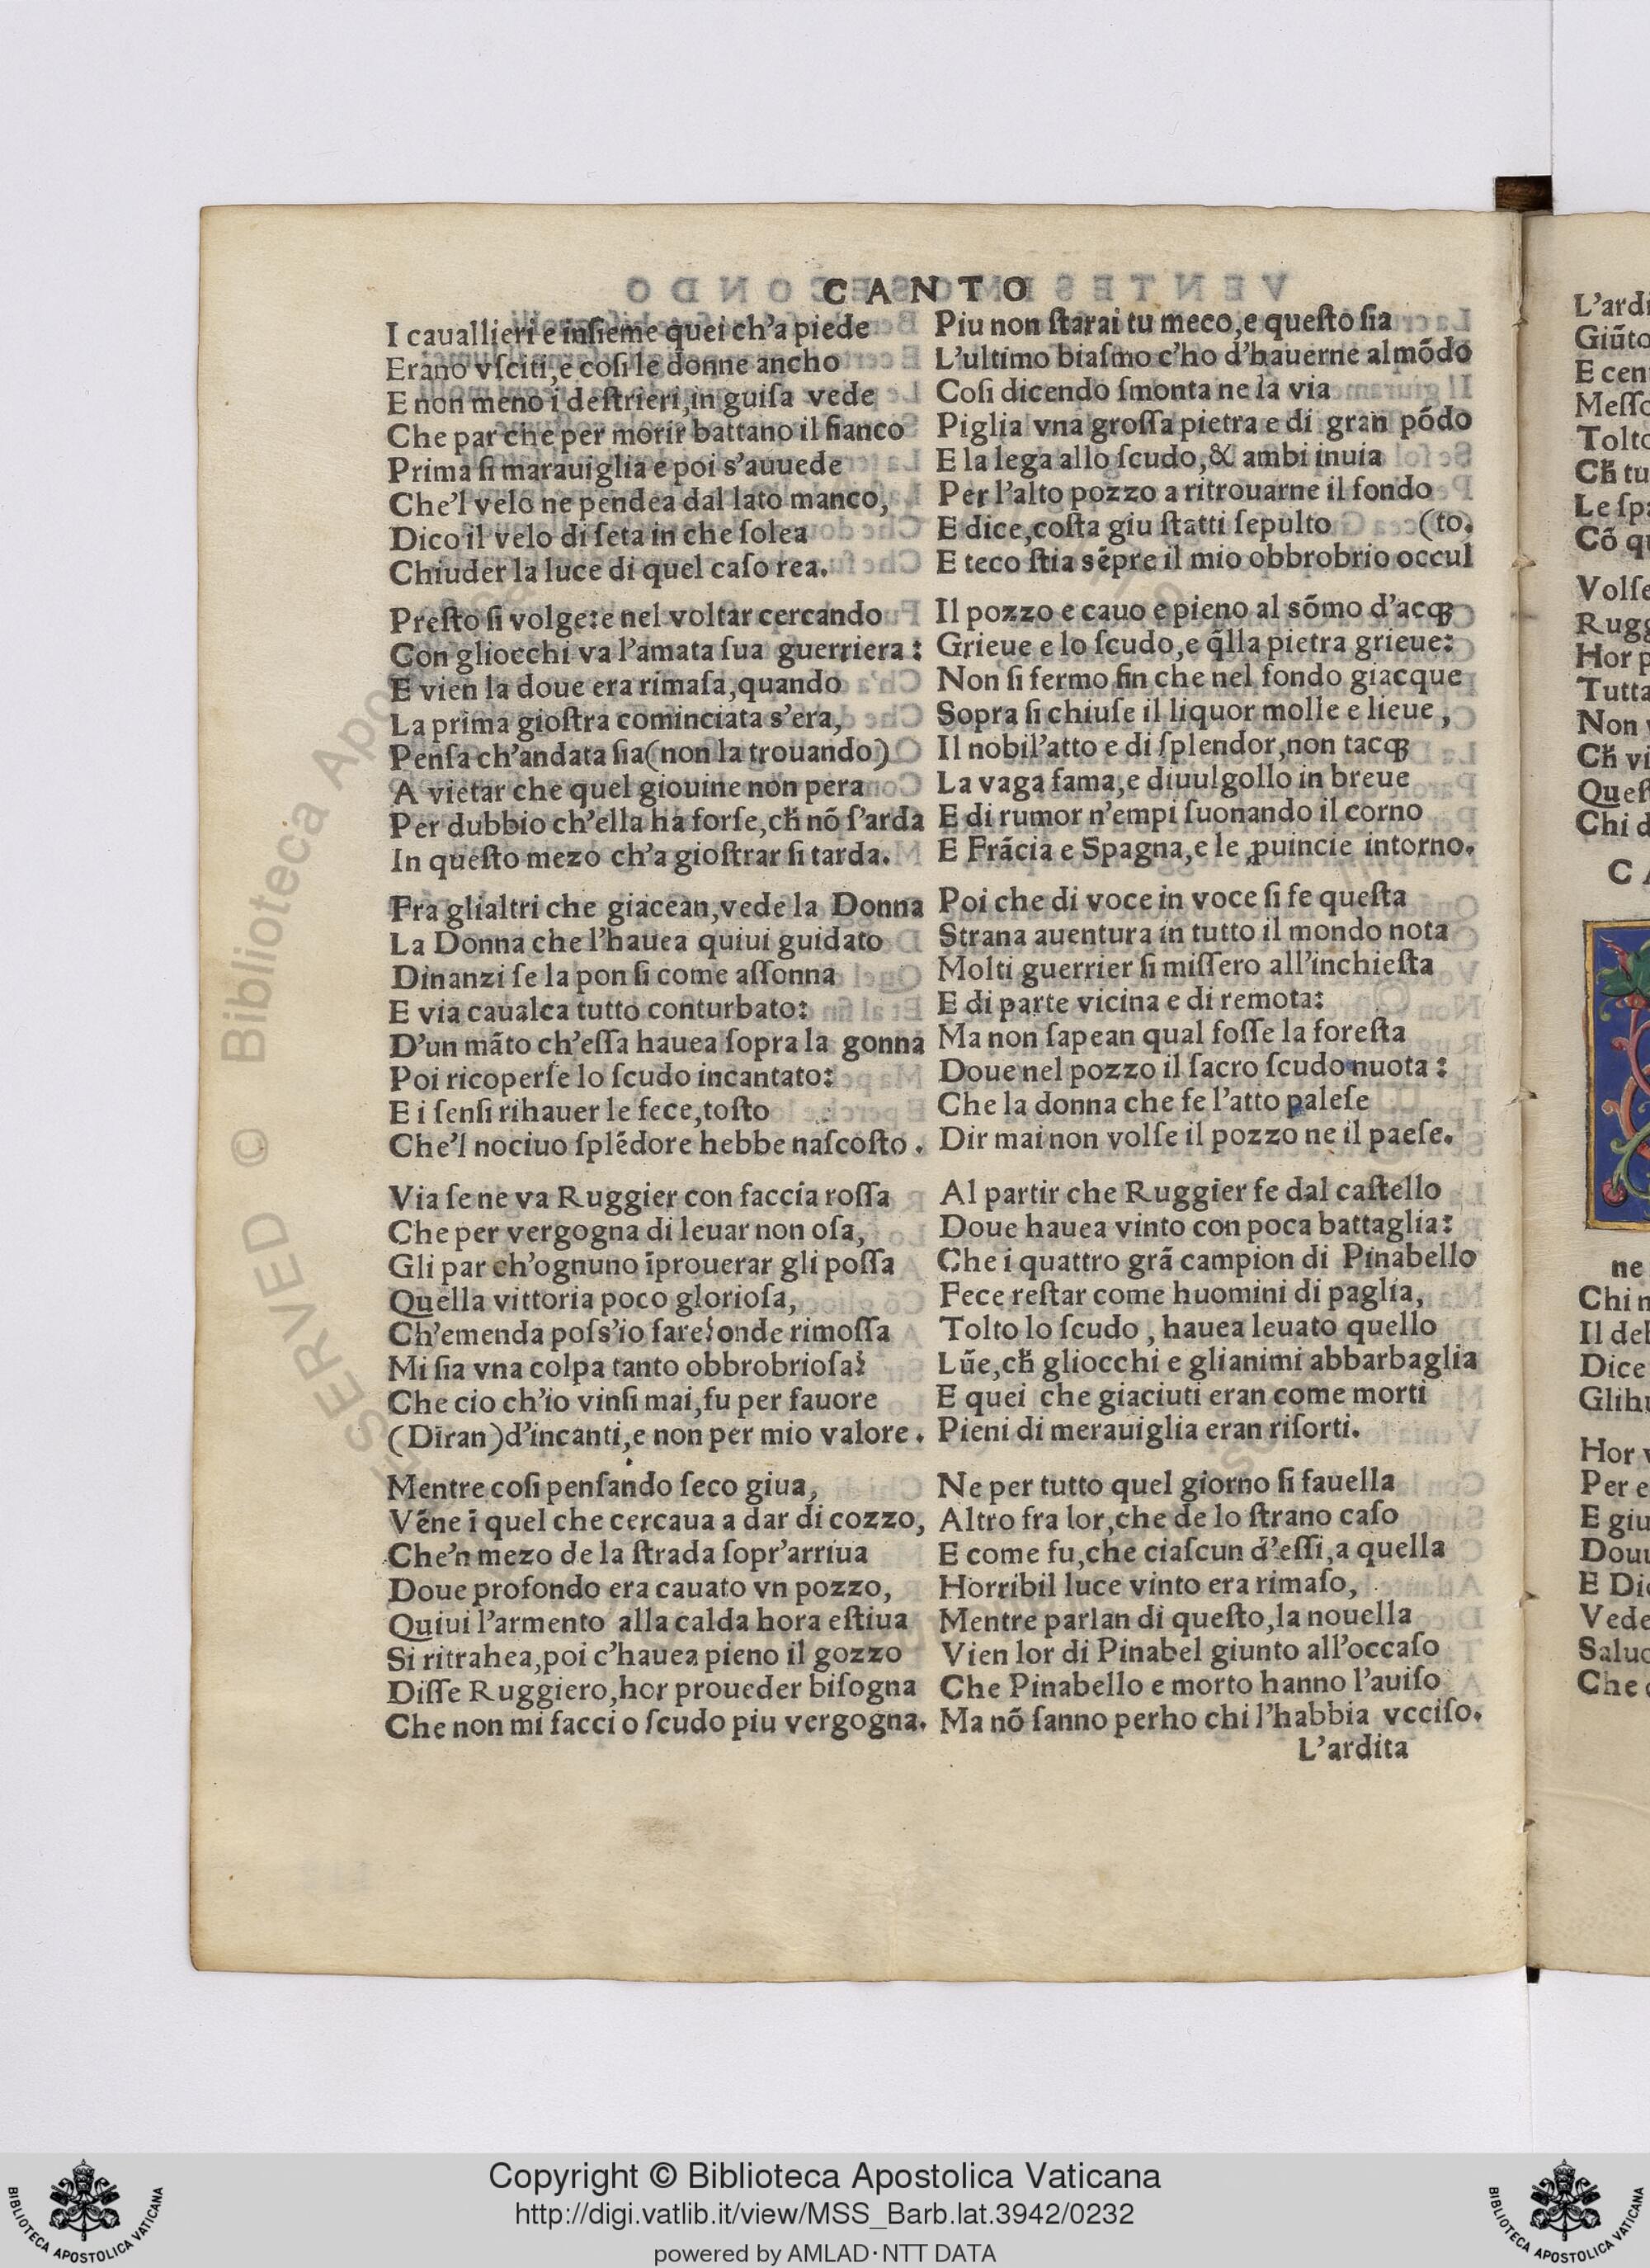 CANTO
I cauallieri e inſieme quei ch'a piede
Erano vſciti,e coſi le donne ancho
E non meno i deſtrieri,in guiſa vede
Che par che per morir battano il fianco
Prima ſi marauiglia e poi s'auuede
Che'l velo ne pendea dal lato manco,
Dico il velo di ſeta in che ſolea
Chiuder la luce di quel caſo rea.
Preſto ſi volge:e nel voltar cercando
Con gliocchi va l'amata ſua guerriera:
E vien la doue era rimaſa,quando
La prima gioſtra cominciata s'era,
Penſa ch'andata ſia(non la trouando)
A vietar che quel giouine non pera
Per dubbio ch'ella ha forſe,ch̄ nõ ſ'arda
In queſto mezo ch'a gioſtrar ſi tarda.
Fra glialtri che giacean,vede la Donna
La Donna che l'hauea quiui guidato
Dinanzi ſe la pon ſi come aſſonna
E via caualca tutto conturbato:
D'un mãto ch'eſſa hauea ſopra la gonna
Poi ricoperſe lo ſcudo incantato:
E i ſenſi rihauer le fece,toſto
Che'l nociuo ſplẽdore hebbe naſcoſto.
Via ſene va Ruggier con faccia roſſa
Che per vergogna di leuar non oſa,
Gli par ch'ognuno ĩprouerar gli poſſa
Quella vittoria poco glorioſa,
Ch'emenda poſs'io fare?onde rimoſſa
Mi ſia vna colpa tanto obbrobrioſa?
Che cio ch'io vinſi mai,fu per fauore
(Diran)d'incanti,e non per mio valore.
Mentre coſi penſando ſeco giua,
Vẽne ĩ quel che cercaua a dar di cozzo,
Che'n mezo de la ſtrada ſopr'arriua
Doue profondo era cauato vn pozzo,
Quiui l'armento alla calda hora eſtiua
Si ritrahea,poi c'hauea pieno il gozzo
Diſſe Ruggiero,hor proueder biſogna
Che non mi facci o ſcudo piu vergogna.
Piu non ſtarai tu meco,e queſto ſia
L'ultimo biaſmo c'ho d'hauerne al mõdo
Coſi dicendo ſmonta ne la via
Piglia vna groſſa pietra e di gran põdo
E la lega allo ſcudo,& ambi inuia
Per l'alto pozzo a ritrouarne il fondo
E dice,coſta giu ſtatti ſepulto (to.
E teco ſtia sẽpre il mio obbrobrio occul
Il pozzo e cauo e pieno al sõmo d'acqꝫ
Grieue e lo ſcudo,e q̃lla pietra grieue:
Non ſi fermo fin che nel fondo giacque
Sopra ſi chiuſe il liquor molle e lieue,
Il nobil'atto e di ſplendor,non tacqꝫ
La vaga fama,e diuulgollo in breue
E di rumor n'empi ſuonando il corno
E Frãcia e Spagna,e le ꝓuincie intorno.
Poi che di voce in voce ſi fe queſta
Strana auentura in tutto il mondo nota
Molti guerrier ſi miſſero all'inchieſta
E di parte vicina e di remota:
Ma non ſapean qual foſſe la foreſta
Doue nel pozzo il ſacro ſcudo nuota:
Che la donna che fe l'atto paleſe
Dir mai non volſe il pozzo ne il paeſe.
Al partir che Ruggier fe dal caſtello
Doue hauea vinto con poca battaglia:
Che i quattro grã campion di Pinabello
Fece reſtar come huomini di paglia,
Tolto lo ſcudo, hauea leuato quello
Lũe,ch̄ gliocchi e glianimi abbarbaglia
E quei che giaciuti eran come morti
Pieni di merauiglia eran riſorti.
Ne per tutto quel giorno ſi fauella
Altro fra lor,che de lo ſtrano caſo
E come fu,che ciaſcun d'eſſi,a quella
Horribil luce vinto era rimaſo,
Mentre parlan di queſto,la nouella
Vien lor di Pinabel giunto all'occaſo
Che Pinabello e morto hanno l'auiſo
Ma nõ ſanno perho chi l'habbia vcciſo.
L'ardita
Copyright © Biblioteca Apostolica Vaticana
http://digi.vatlib.it/view/MSS_Barb.lat.3942/0232
powered by AMLAD·NTT DATA
BIBLIOTECA APOSTOLICA VATICANA
BIBLIOTECA APOSTOLICA VATICANA